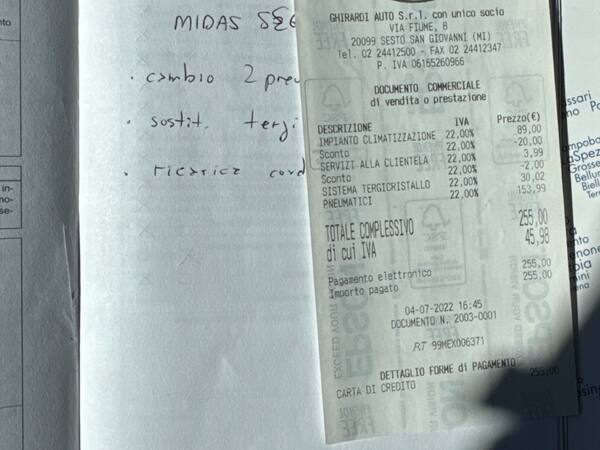 MIDAS
• cambio 2
• sostit.
• ricarica
GHIRARDI AUTO S.r.l. con unico socio
VIA FIUME, 8
20099 SESTO SAN GIOVANNI (MI)
Tel. 02 24412500 - FAX 02 24412347
P. IVA 06165260966
DOCUMENTO COMMERCIALE
di vendita o prestazione
DESCRIZIONE IVA Prezzo(€)
IMPIANTO CLIMATIZZAZIONE 22,00% 89,00
Sconto 22,00% -20,00
SERVIZI ALLA CLIENTELA 22,00% 3,99
Sconto 22,00% -2,00
SISTEMA TERGICRISTALLO 22,00% 30,02
PNEUMATICI 22,00% 153,99
TOTALE COMPLESSIVO 255,00
di cui IVA 45,98
Pagamento elettronico 255,00
Importo pagato 255,00
04-07-2022 16:45
DOCUMENTO N. 2003-0001
RT 99MEX006371
DETTAGLIO FORME di PAGAMENTO
CARTA DI CREDITO 255,00